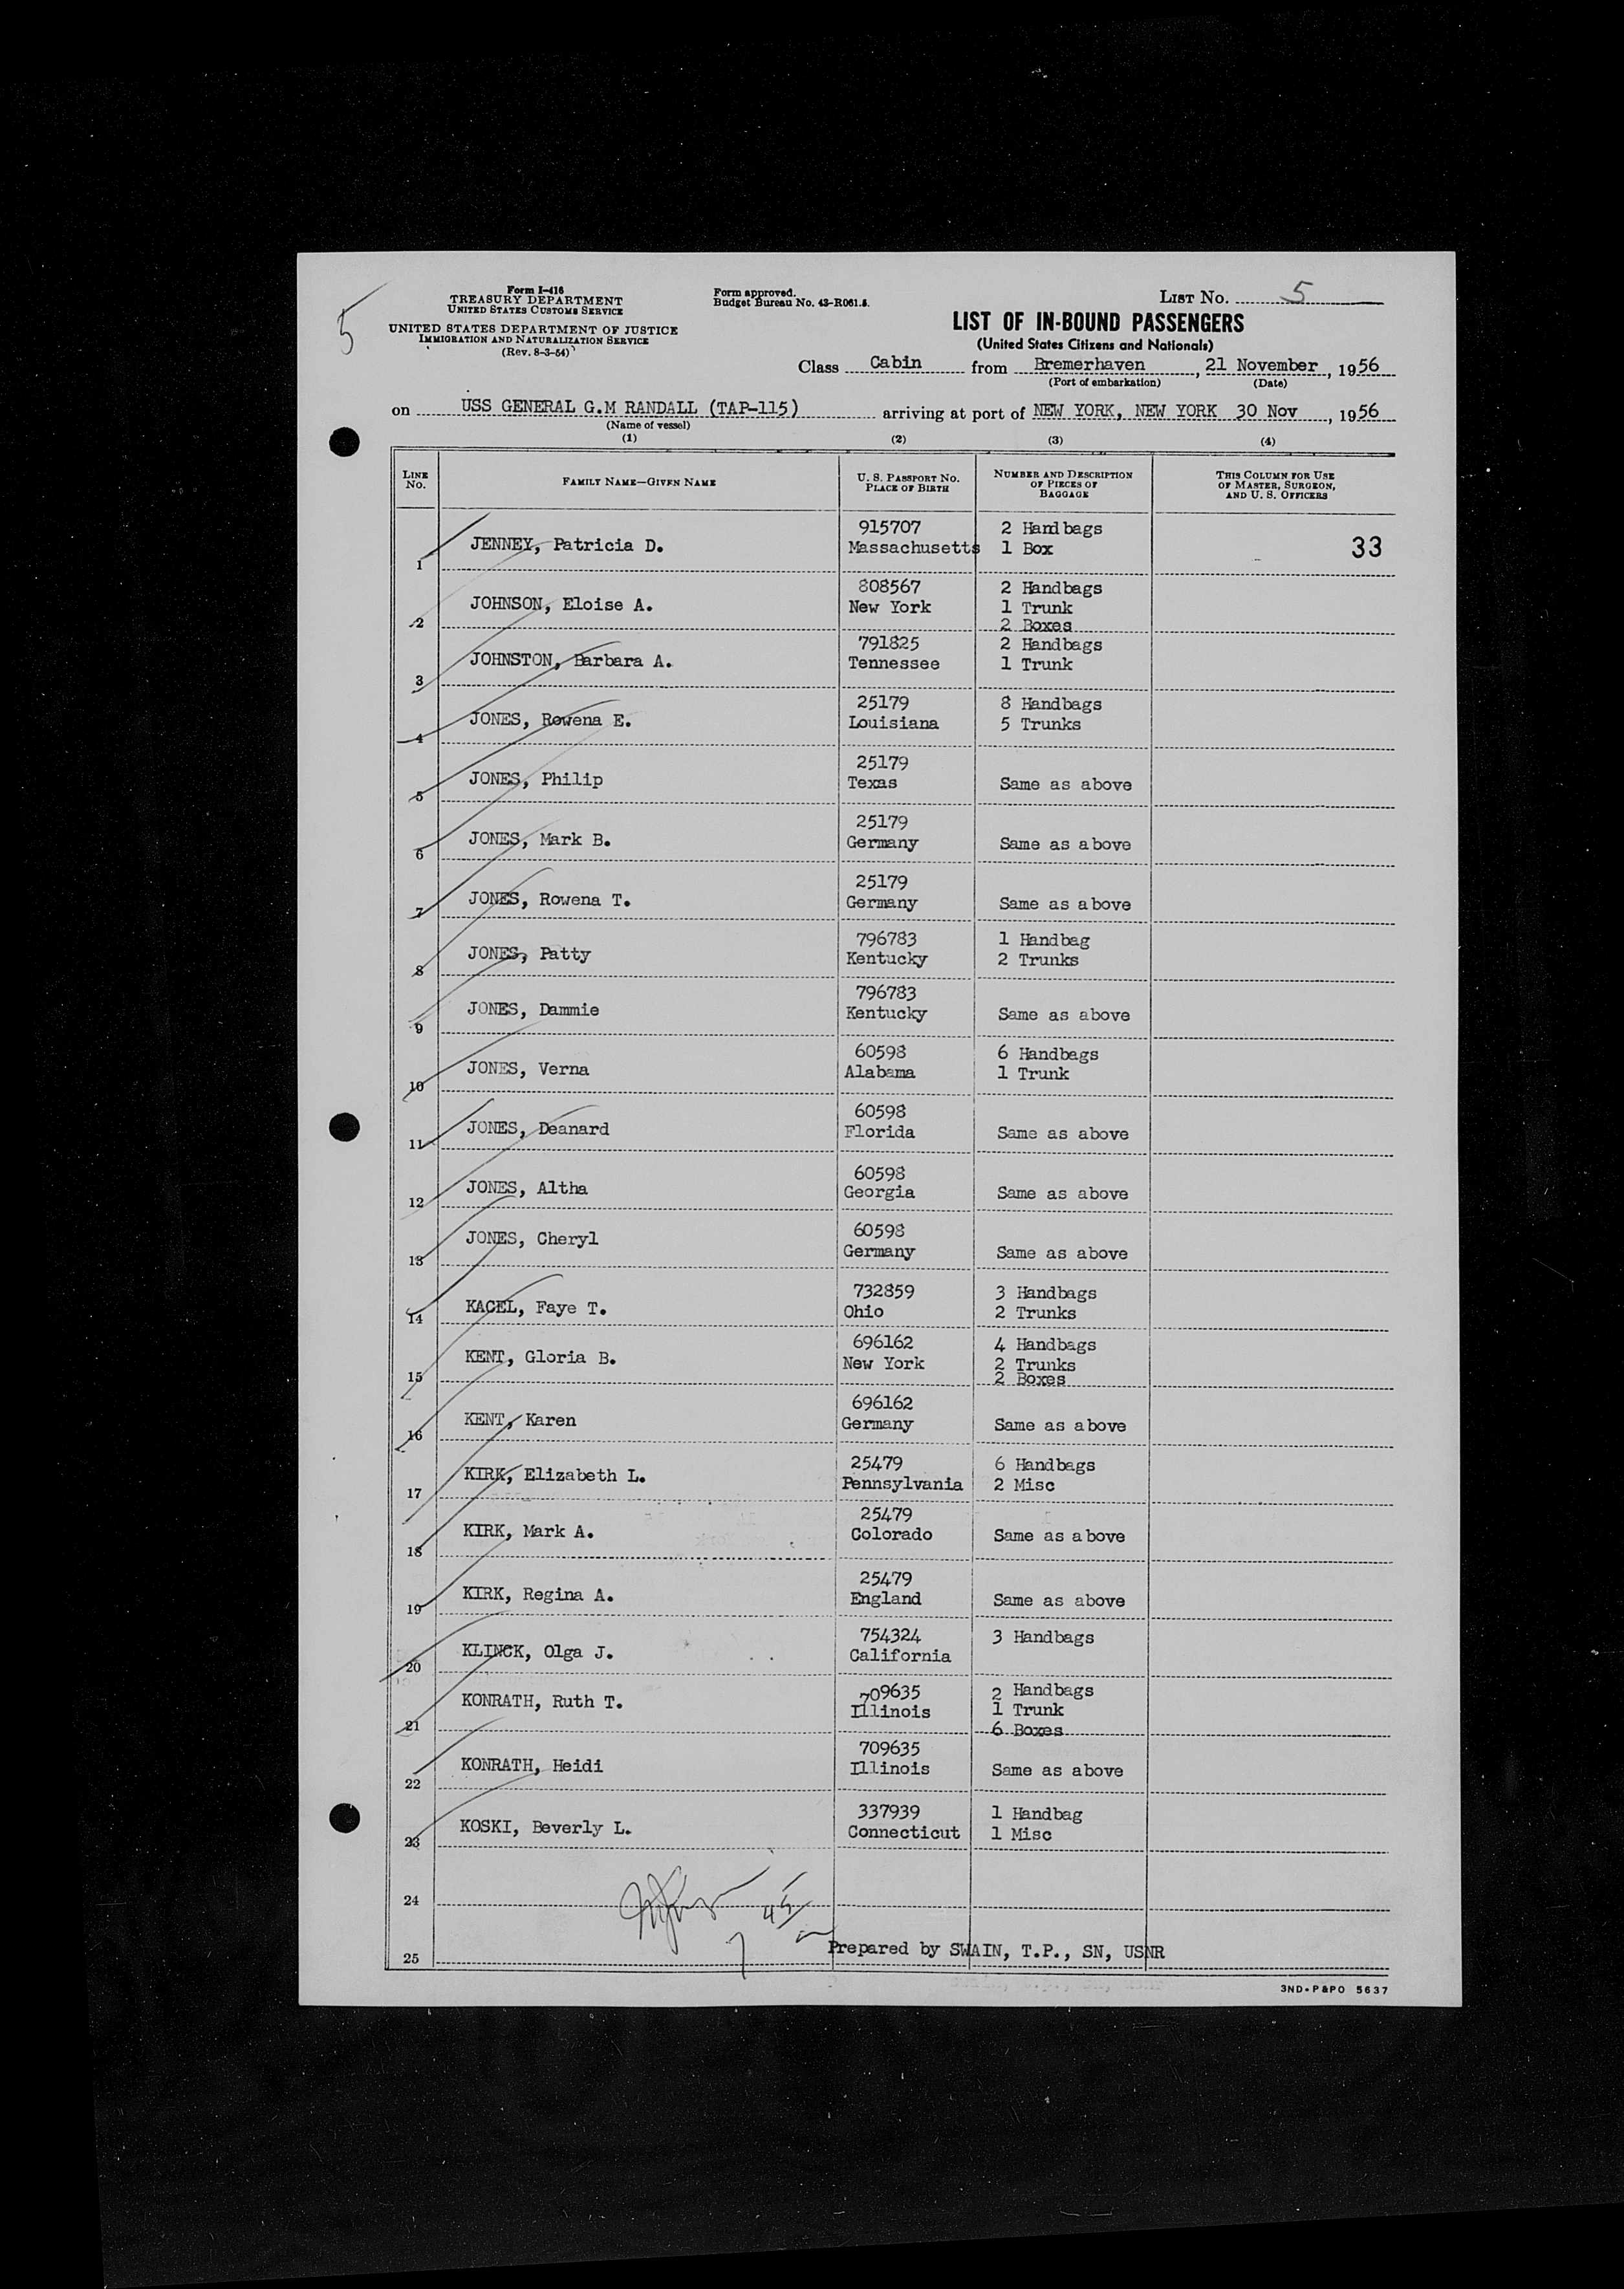 5
Form I-416
TREASURY DEPARTMENT
UNITED STATES CUSTOMS SERVICE
UNITED STATES DEPARTMENT OF JUSTICE
IMMIGRATION AND NATURALIZATION SERVICE
(Rev. 8-3-54)
Form approved.
Budget Bureau No. 43-R061.5.
LIST NO. 5
LIST OF IN-BOUND PASSENGERS
(United States Citizens and Nationals)
Class Cabin from Bremerhaven, 21 November, 1956
(Port of embarkation) (Date)
on USS GENERAL G.M RANDALL (TAP-115) arriving at port of NEW YORK, NEW YORK 30 Nov, 1956
(Name of vessel)
(1) (2) (3) (4)
LINE NO. FAMILY NAME—GIVEN NAME U. S. PASSPORT NO. PLACE OF BIRTH NUMBER AND DESCRIPTION OF PIECES OF BAGGAGE THIS COLUMN FOR USE OF MASTER, SURGEON, AND U. S. OFFICERS
915707 2 Handbags
1 JENNEY, Patricia D. Massachusetts 1 Box 33
808567 2 Handbags
2 JOHNSON, Eloise A. New York 1 Trunk
2 Boxes
791825 2 Handbags
3 JOHNSTON, Barbara A. Tennessee 1 Trunk
25179 8 Handbags
4 JONES, Rowena E. Louisiana 5 Trunks
25179
5 JONES, Philip Texas Same as above
25179
6 JONES, Mark B. Germany Same as above
25179
7 JONES, Rowena T. Germany Same as above
796783 1 Handbag
8 JONES, Patty Kentucky 2 Trunks
796783
9 JONES, Dammie Kentucky Same as above
60598 6 Handbags
10 JONES, Verna Alabama 1 Trunk
60598
11 JONES, Deanard Florida Same as above
60598
12 JONES, Altha Georgia Same as above
60598
13 JONES, Cheryl Germany Same as above
732859 3 Handbags
14 KACEL, Faye T. Ohio 2 Trunks
696162 4 Handbags
15 KENT, Gloria B. New York 2 Trunks
2 Boxes
696162
16 KENT, Karen Germany Same as above
25479 6 Handbags
17 KIRK, Elizabeth L. Pennsylvania 2 Misc
25479
18 KIRK, Mark A. Colorado Same as above
25479
19 KIRK, Regina A. England Same as above
754324 3 Handbags
20 KLINCK, Olga J. California
709635 2 Handbags
21 KONRATH, Ruth T. Illinois 1 Trunk
6 Boxes
709635
22 KONRATH, Heidi Illinois Same as above
337939 1 Handbag
23 KOSKI, Beverly L. Connecticut 1 Misc
24
25 Prepared by SWAIN, T.P., SN, USNR
3ND-P&PO 5637